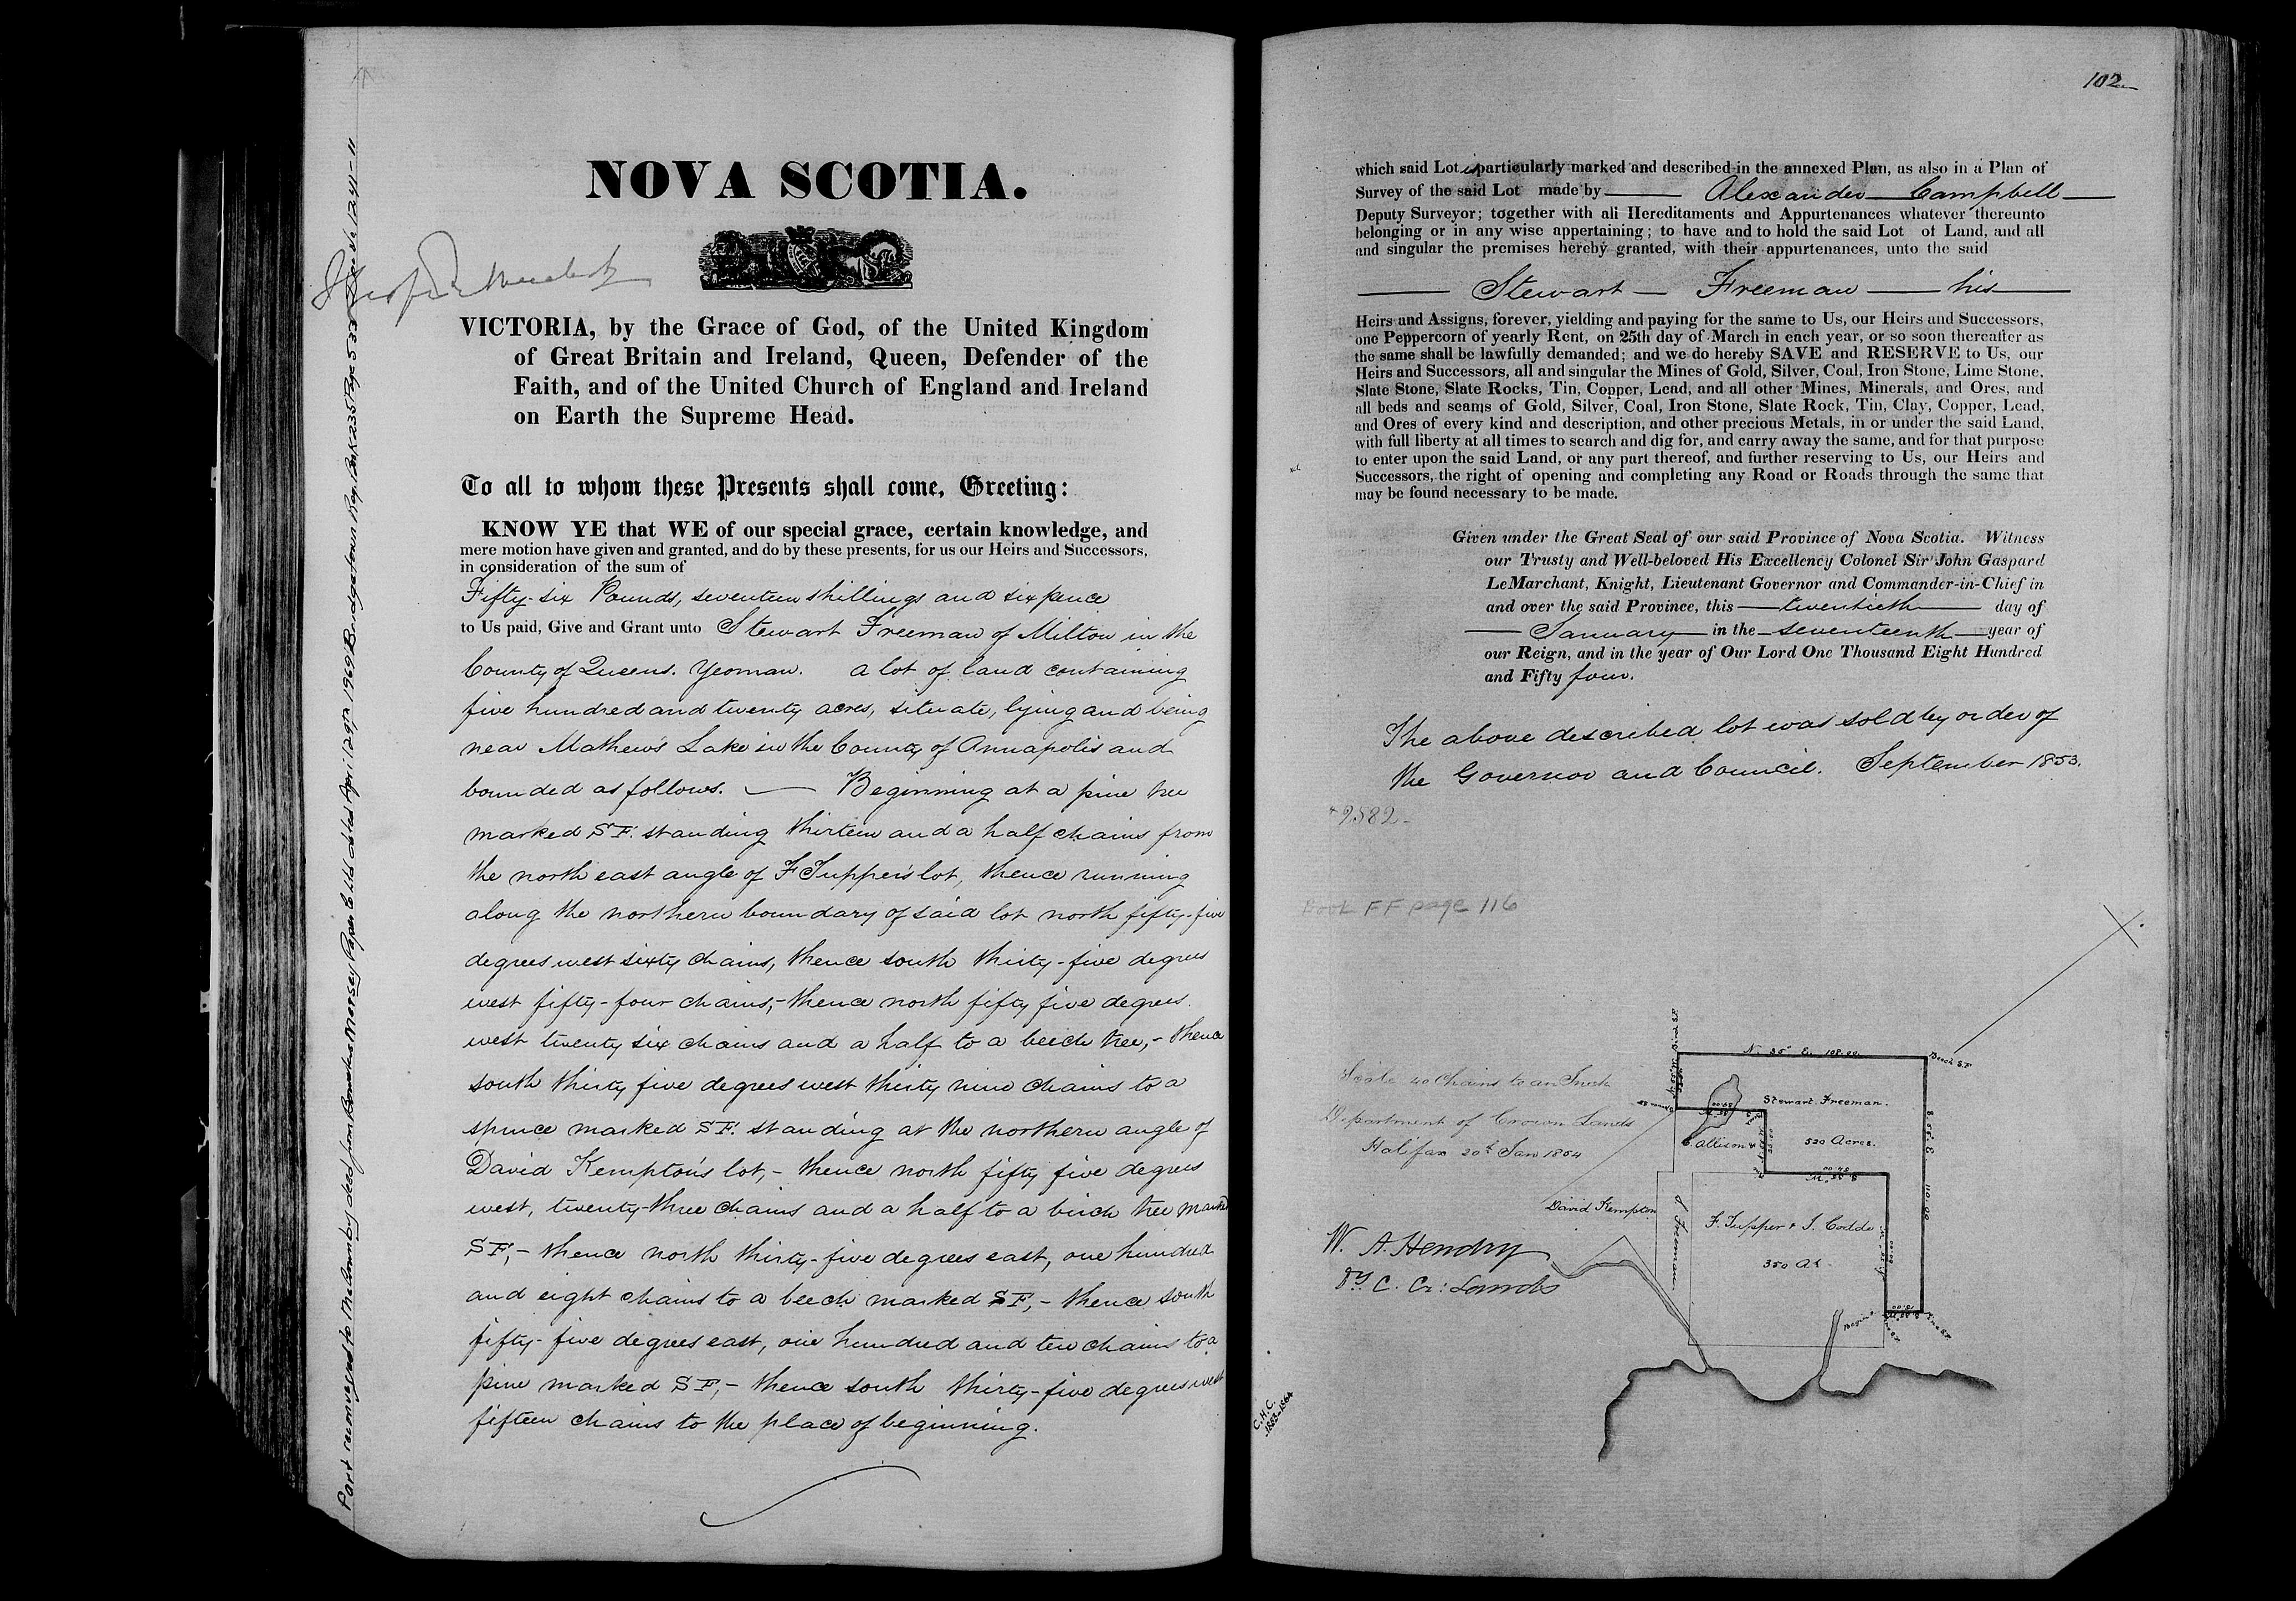 NOVA SCOTIA.
VICTORIA, by the Grace of God, of the United Kingdom
of Great Britain and Ireland, Queen, Defender of the
Faith, and of the United Church of England and Ireland
on Earth the Supreme Head.
To all to whom these Presents shall come, Greeting:
KNOW YE that WE of our special grace, certain knowledge, and
mere motion have given and granted, and do by these presents, for us our Heirs and Successors,
in consideration of the sum of
Fifty-six Pounds, seventeen shillings and six pence
to Us paid, Give and Grant unto Stewart Freeman of Milton in the
County of Queens. Yeoman. a lot of land containing
five hundred and twenty acres, situate, lying and being
near Mathew's Lake in the County of Annapolis and
bounded as follows. — Beginning at a pine tree
marked SF. standing thirteen and a half chains from
the north east angle of F Tupper's lot, thence running
along the northern boundary of said lot north fifty-five
degrees west sixty chains, thence south thirty-five degrees
west fifty-four chains,- thence north fifty five degrees
west twenty six chains and a half to a beech tree,- thence
south thirty five degrees west thirty nine chains to a
spruce marked SF. standing at the northern angle of
David Kempton's lot,- thence north fifty five degrees
west, twenty-three chains and a half to a birch tree marked
SF,- thence north thirty-five degrees east, one hundred
and eight chains to a beech marked SF,- thence south
fifty-five degrees east, one hundred and ten chains to a
pine marked SF,- thence south thirty-five degrees west
fifteen chains to the place of beginning.
Part reconveyed to the Crown by deed from Morsey Paper Co. Ltd dated April 29th 1969 Bridgetown Reg. Book 235 Page 533
102
which said Lot is particularly marked and described in the annexed Plan, as also in a Plan of
Survey of the said Lot made by — Alexander Campbell —
Deputy Surveyor; together with all Hereditaments and Appurtenances whatever thereunto
belonging or in any wise appertaining; to have and to hold the said Lot of Land, and all
and singular the premises hereby granted, with their appurtenances, unto the said
— Stewart — Freeman — his —
Heirs and Assigns, forever, yielding and paying for the same to Us, our Heirs and Successors,
one Peppercorn of yearly Rent, on 25th day of March in each year, or so soon thereafter as
the same shall be lawfully demanded; and we do hereby SAVE and RESERVE to Us, our
Heirs and Successors, all and singular the Mines of Gold, Silver, Coal, Iron Stone, Lime Stone,
Slate Stone, Slate Rocks, Tin, Copper, Lead, and all other Mines, Minerals, and Ores, and
all beds and seams of Gold, Silver, Coal, Iron Stone, Slate Rock, Tin, Clay, Copper, Lead,
and Ores of every kind and description, and other precious Metals, in or under the said Land,
with full liberty at all times to search and dig for, and carry away the same, and for that purpose
to enter upon the said Land, or any part thereof, and further reserving to Us, our Heirs and
Successors, the right of opening and completing any Road or Roads through the same that
may be found necessary to be made.
Given under the Great Seal of our said Province of Nova Scotia. Witness
our Trusty and Well-beloved His Excellency Colonel Sir John Gaspard
LeMarchant, Knight, Lieutenant Governor and Commander-in-Chief in
and over the said Province, this — twentieth — day of
— January — in the — seventeenth — year of
our Reign, and in the year of Our Lord One Thousand Eight Hundred
and Fifty four.
The above described lot was sold by order of
the Governor and Council. September 1853.
2582
Book FF page 116
N. 35° E. 108.00
Beech S.F
Scale 40 Chains to an Inch
Stewart Freeman.
Department of Crown Lands
Allison
520 Acres.
S. 55° E. 110.00
Halifax 20th Jan 1854
David Kempton
S Freeman
F. Tupper & S. Cadde
350 Ac.
W. A. Hendry
Dy C. Cr: Lands
C.H.C.
1853-1864